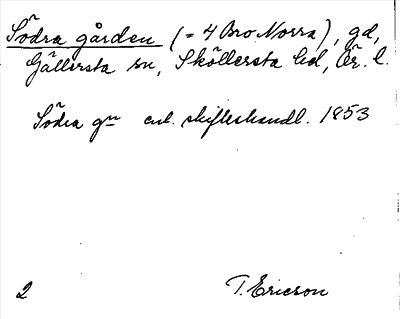 Södra gården (= 4 Bro Norra), gd,
Gällersta sn, Sköllersta hd, Ör. l.
Södra gn enl. skifteshandl. 1853
2 T. Ericson